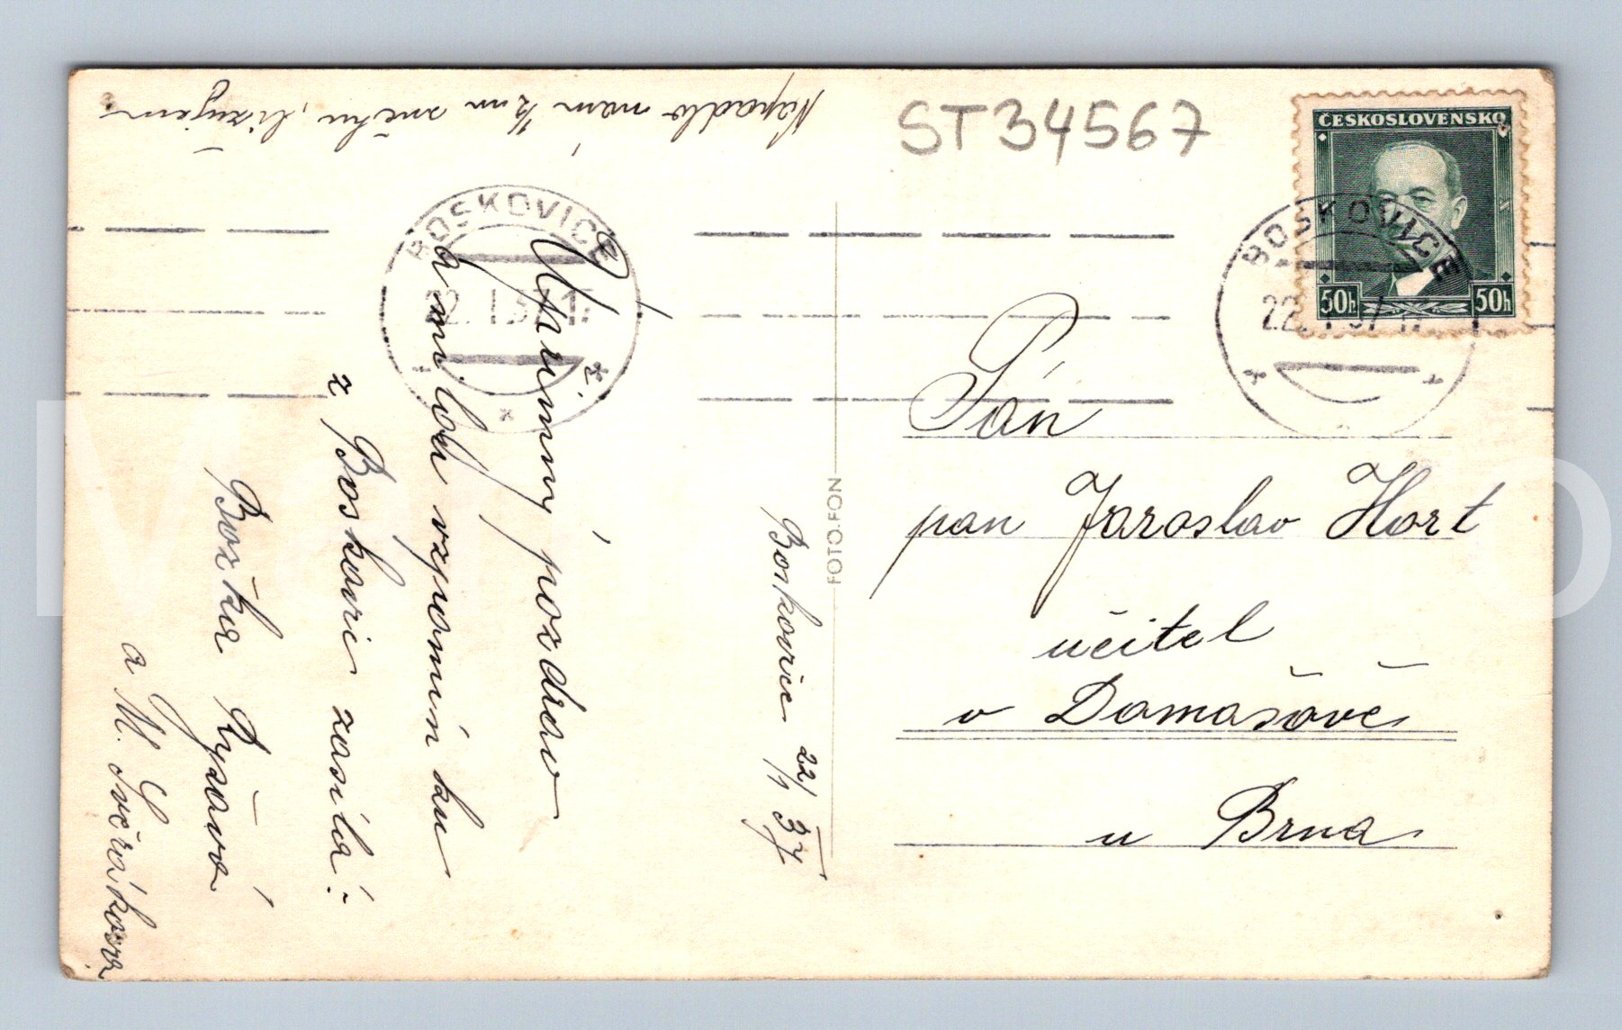 Napadlo nám ½ m sněhu, ližujem
ST34567
ČESKOSLOVENSKO
50h 50h
BOSKOVICE
22. I 37 17
BOSKOVICE
22. I 37 17
Upřimný pozdrav
a milou vzpomín ku
z Boskovic zasílá:
Božka Ryšavá
a M. Svěráková
Boskovice 22/1 37
FOTO-FON
Pán
pan Jaroslav Hort
učitel
v Domašově
u Brna